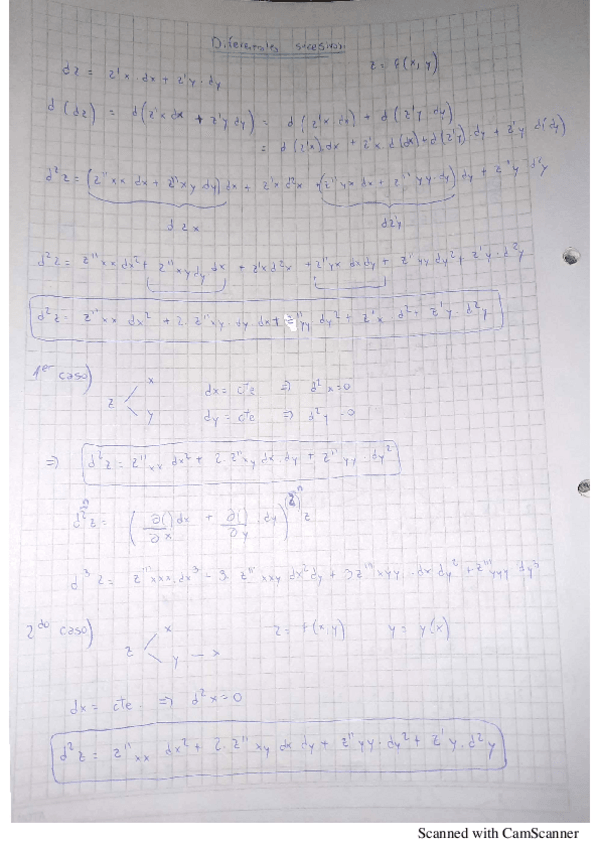 Diferenciales sucesivos
dz = z'x · dx + z'y · dy          z = f(x, y)
d(dz) = d(z'x dx + z'y dy) = d(z'x · dx) + d(z'y · dy)
= d(z'x) · dx + z'x · d(dx) + d(z'y) · dy + z'y d(dy)
d²z = (z''xx dx + z''xy dy) dx + z'x d²x + (z''yx dx + z''yy dy) dy + z'y d²y
dzx          dzy
d²z = z''xx dx² + z''xy dy dx + z'x d²x + z''yx dx dy + z'yy dy² + z'y · d²y
d²z = z''xx dx² + 2 · z''xy · dy dx + z''yy dy² + z'x d² + z'y · d²y
1er caso)
z < x          dx = cte ⇒ d²x = 0
y          dy = cte ⇒ d²y = 0
⇒ d²z = z''xx dx² + 2 · z''xy dx · dy + z''yy · dy²
dⁿz = (∂()/∂x dx + ∂()/∂y · dy)ⁿ z
d³z = z'''xxx · dx³ + 3 z'''xxy dx² dy + 3z'''xyy · dx dy² + z'''yyy dy³
2do caso)
z < x          z = f(x, y)          y = y(x)
y — x
dx = cte ⇒ d²x = 0
d²z = z''xx dx² + 2 · z''xy dx dy + z''yy · dy² + z'y · d²y
Scanned with CamScanner